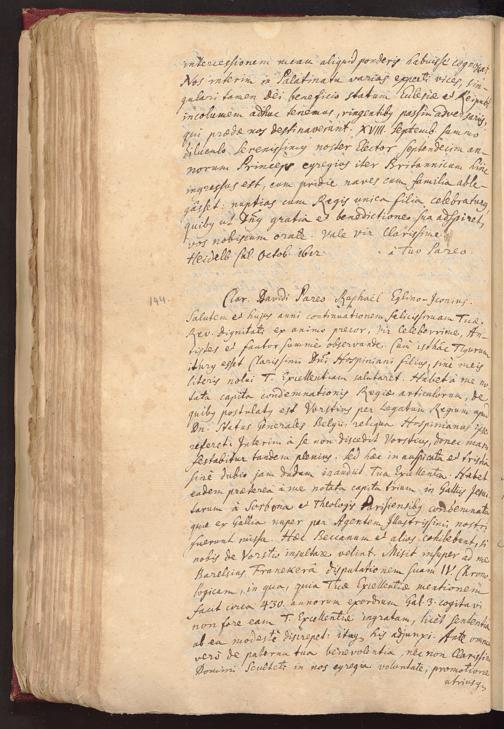 intercessionem meam aliquid ponderis habuisse
Nos interim in Palatinatu varias experti vices, sin-
gulari tamen Dei beneficio statum Ecclesiæ et Reipub.
incolumem adhuc tenemus, ringentibꝰ passim adversariis,
qui prædæ nos destinaverunt. XVIII. Septemb. summo
diluculo Serenissimus noster Elector Septendecim an-
norum Princeps egregius iter Britannicum hinc
ingressus est, cum pridie naves cum familia able-
gasset: nuptias cum Regis unica filia celebraturus
quibꝰ ut Dnꝰ gratia et benedictione sua adspiret,
vos nobiscum orate. Vale vir Clarissime.
Heidelb. Octob. 1612. à Tuo Pareo.
144.
Clar. Davidi Pareo Raphaël Eglinus Iconius.
Salutem et hujus anni continuationem felicissimam Tuæ
Rev. Dignitati ex animo precor, vir Celeberrime, An-
tistes et fautor summe observande. Cum isthâc Tigurum
iturus esset Clarissimi Dni Hospiniani filius, sine meis
literis nolui T. Excellentiam salutaret. Habet à me no-
tata capita condemnationis Regiæ articulorum, de
quibꝰ postulatus est Vorstius per Legatum Regium apud
Dn. Status Generales Belgii, reliqua Hospinianus
referet. Interim à se non discedit Vorstius, donec mani-
festabitur tandem plenius. Sed hæc inauspicata et tristia
sine dubio jam dudum inaudiit Tua Excellentia. Habet
eadem præterea à me notata capita trium in Galliis Jesui-
tarum à Sorbona et Theologis Parisiensibꝰ condemnata
quæ ex Gallia nuper per Agentem Illustrissimi nostri
fuerunt missa. Hæc Beccanum et alios cohibebunt, si
nobis de Vorstio insultare velint. Misit insuper ad me
Franekerâ disputationem suam IV. Chrono-
logicam, in qua, quia Tuæ Excellentiæ mentionem
facit circa 430. annorum exordium Gal. 3. cogitavi
non fore eam T. Excellentiæ ingratam, licet sententia
ab ea modestè discrepet: itaqꝫ his adjunxi. Ante omnia
verò de paterna tua benevolentia, nec non Clarissimi
Domini Sculteti in nos egregia voluntate, promotione
utriusqꝫ